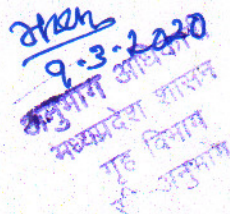 9.3.2020
अनुभाग अधिकारी
मध्यप्रदेश शासन
गृह विभाग
अनुभाग